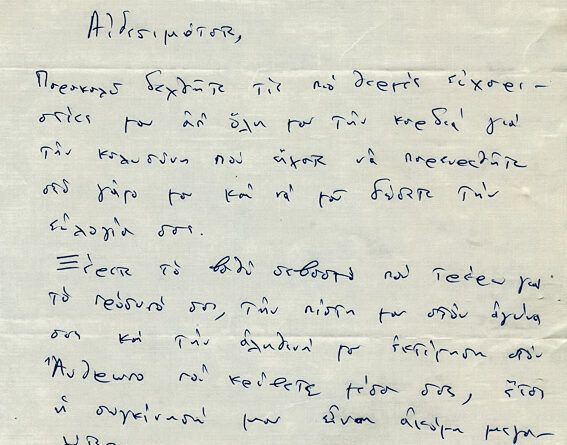 Αἰδεσιμότατε,
Παρακαλῶ δεχθῆτε τίς πιό θερμές εὐχαρι-
στίες μου ἀπ' ὅλη μου τήν καρδιά γιά
τήν καλωσύνη πού εἴχατε νά παρευρεθῆτε
στό γάμο μου καί νά μοῦ δώσετε τήν
εὐλογία σας.
Ξέρετε τό βαθύ σεβασμό πού τρέφω γιά
τό πρόσωπό σας, τήν πίστη μου στόν ἀγώνα
σας καί τήν ἀληθινή μου ἐκτίμηση στόν
Ἄνθρωπο πού κρύβετε μέσα σας, ἔτσι
ἡ συγκίνησή μου εἶναι ἀκόμη μεγα-